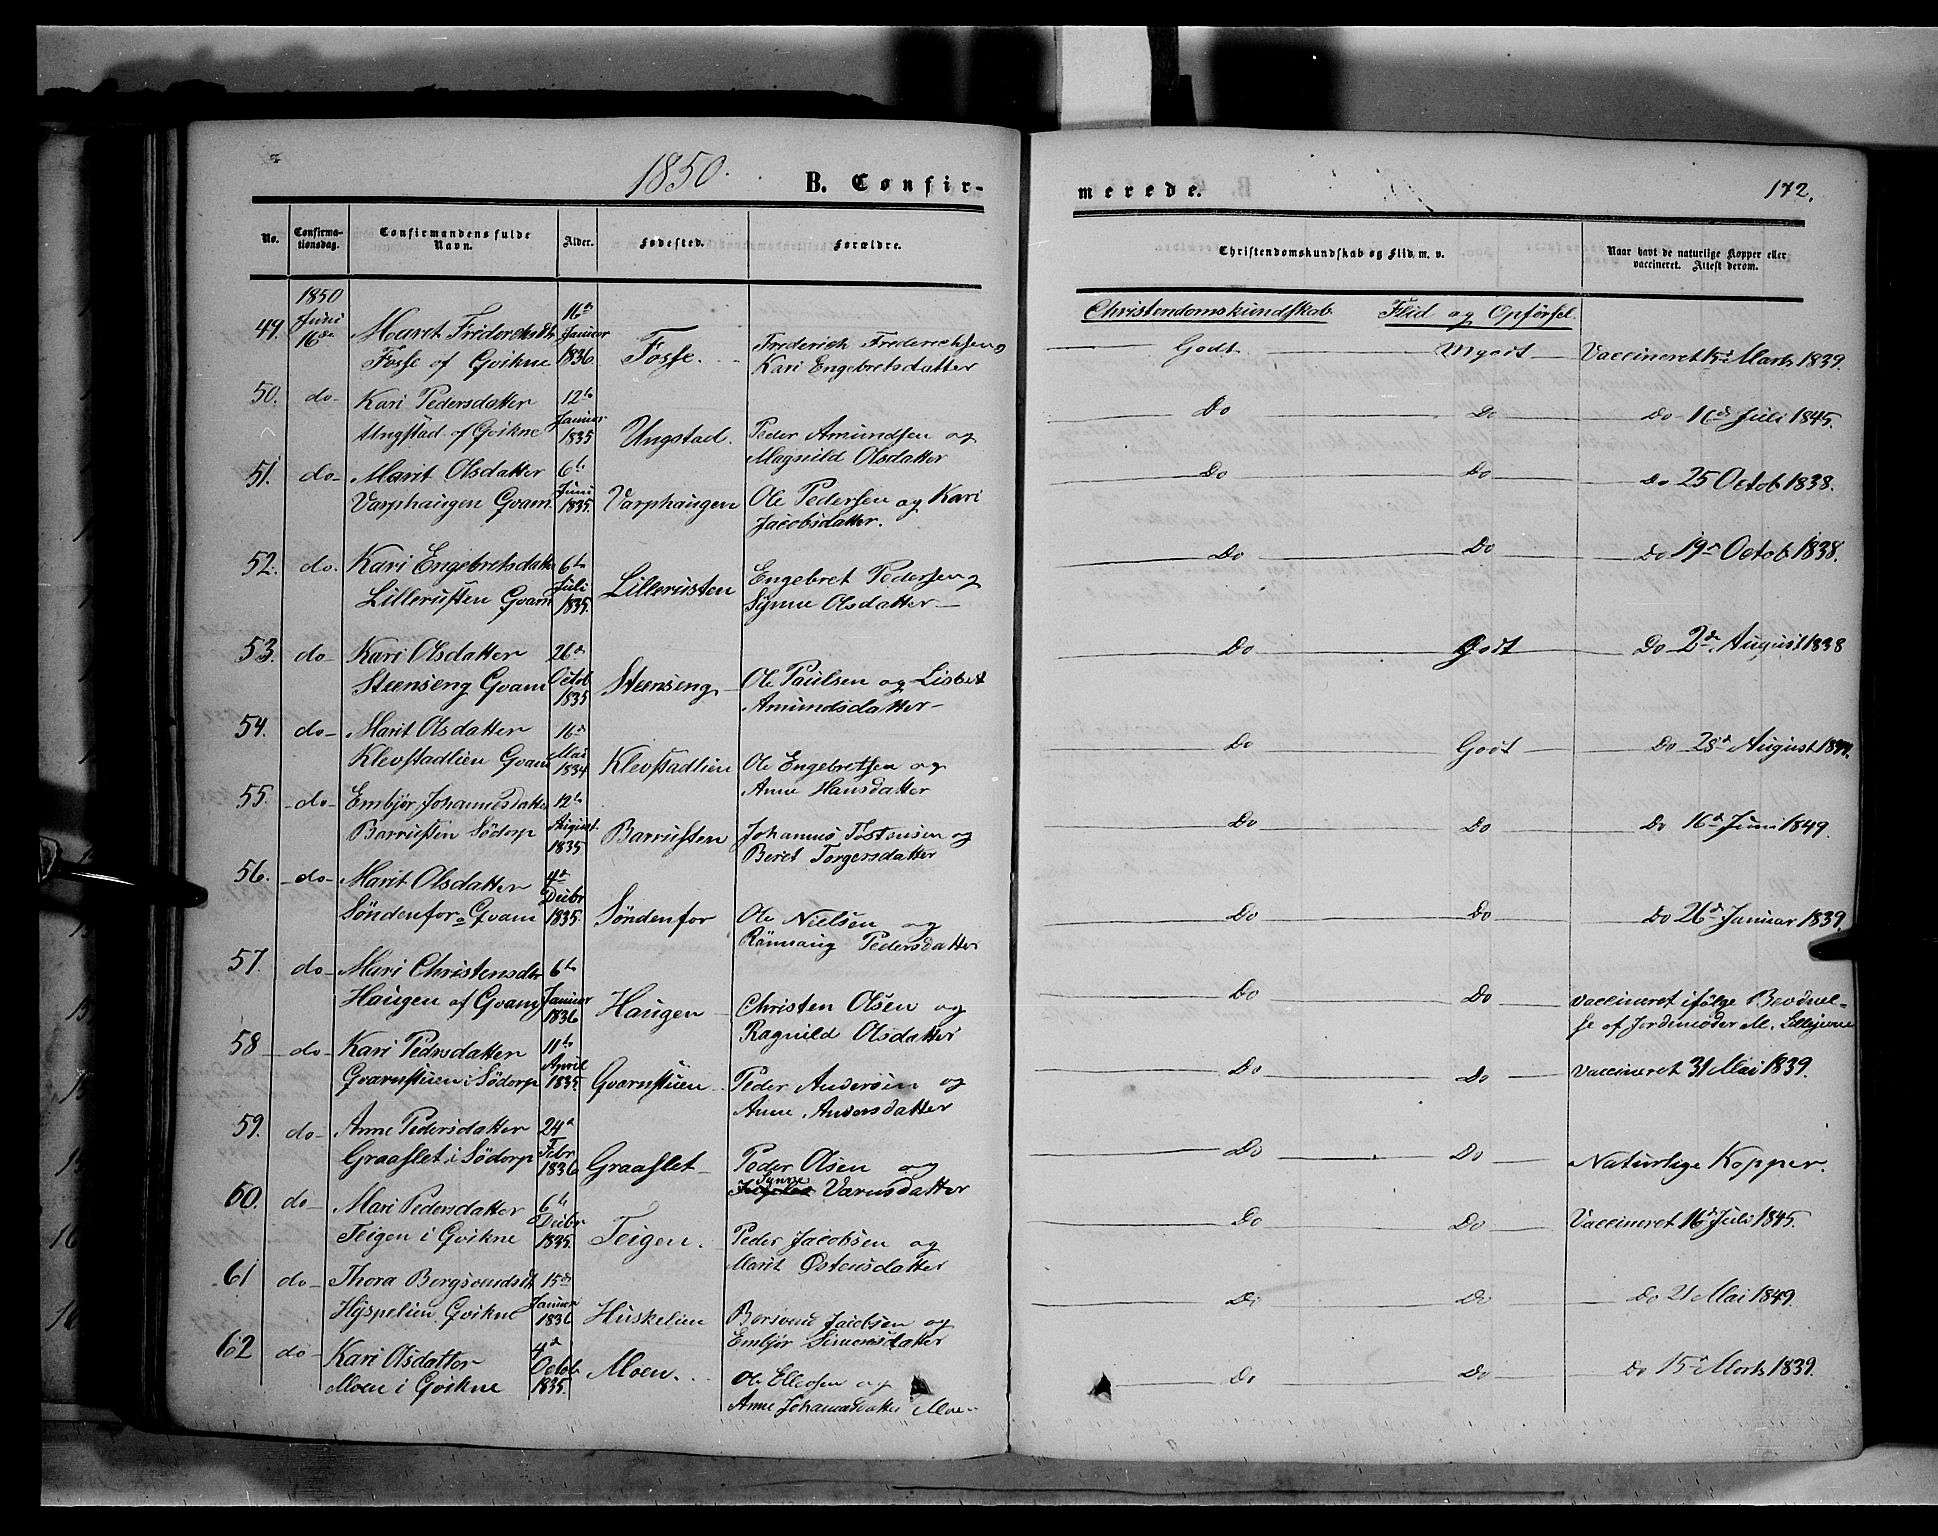 1850. B. Confir-
merede. 172.
No. Confirma-tionsdag. Confirmandens fulde Navn. Alder. Fødested. Forældre. Christendomskundskab og Flid m. v. Naar havt de naturlige Kopper eller vaccineret. Attest derom.
Christendomskundskab. Flid og Opførsel.
49. 1850 Juni 16de Maret Friderchsdtr 16de Januar 1836 Fosse. Frederich Frederichsen og Godt Mgodt Vaccineret 15de Marts 1839.
Fosse af Qvikne Kari Engebretsdatter
50. do Kari Pedersdatter 12te Januar 1835 Ungstad. Peder Amundsen og Do Do Do 16de Juli 1845.
Ungstad af Qvikne Magnild Olsdatter
51. do Marit Olsdatter 6te Juni 1835. Varphaugen Ole Pedersen og Kari Do Do Do 25 Octob 1838.
Varphaugen Qvam Jacobsdatter.
52. do. Kari Engebretsdatter 6te Juli 1835. Lillerusten Engebret Pedersen og Do Do Do 19de Octob 1838.
Lillerusten Qvam Synne Olsdatter
53. do Kari Olsdatter 26de Octob 1835 Steenseng Ole Paulsen og Lisbet Do Godt Do 2de August 1838
Steenseng Qvam Amundsdatter
54. do Marit Olsdatter 16de Mai 1834 Klevstadlien Ole Engebretsen og Do Godt Do 28de August
Klevstadlien Qvam Anne Hansdatter
55. do Embjør Johannesdatter 12te August 1835 Barrusten Johannes Tostensen og Do Do Do 16de Juni 1849.
Barrusten Södorp Beret Torgersdatter
56. do Marit Olsdatter 4de Decbr 1835. Söndenfor Ole Nielsen og Do Do Do 26de Januar 1839.
Söndenfor Qvam Rönnaug Pedersdatter
57. do Mari Christensdtr 6te Januar 1836 Haugen Christen Olsen og Do Do vaccineret ifølge Beviduel-
Haugen af Qvam Ragnild Olsdatter se af Jordemoder M.
58 do Kari Pedersdatter 11te April 1835 Qvarnstuen Peder Andersön og Do Do vaccineret 31 Mai 1839.
Qvarnstuen i Södorp Anne Andersdatter
59. do Anne Pedersdatter 24de Febr 1836 Graaslet Peder Olsen og Do Do Naturlige Kopper.
Graaslet i Södorp Synne Varnsdatter
60. do Mari Pedersdatter 6te Decbr 1835. Teigen. Peder Jacobsen og Do Do Vaccineret 16de Juli 1845.
Teigen i Qvikne Marit Östensdatter
61 do Thora Bergsvendsdt 15de Januar 1836 Huskelien Borsvend Jacobsen og Do Do Do 21 Mai 1849.
Hyspelien Qvikne Embjør Simensdatter
62 do Kari Olsdatter 4de Octob 1835. Moen. Ole Ellevsen og Do Do Do 15de Marts 1839.
Moen i Qvikne Anne Johannesdatter Moe